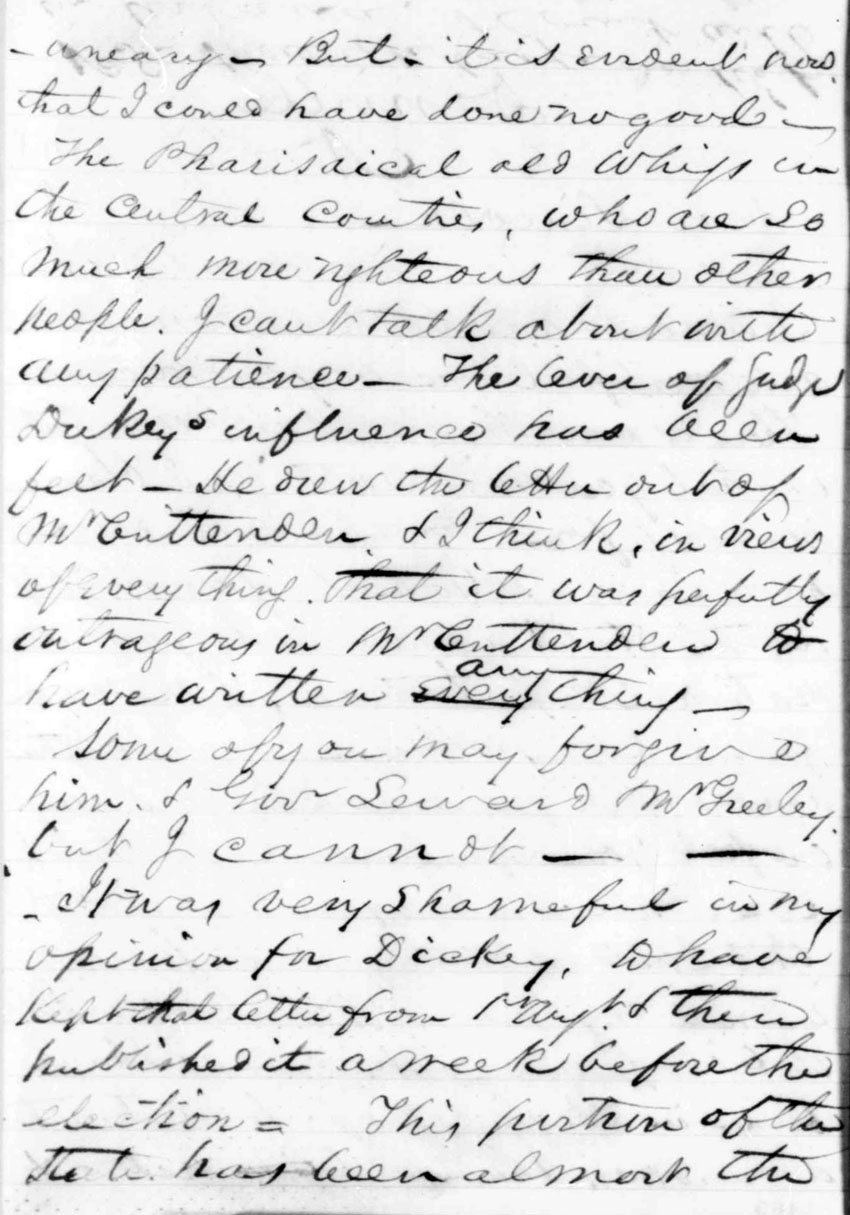 But - it is evident now
that I could have done no good -
The Pharisaical old Whigs in
the Central Counties, who are so
much more righteous than other
people. I cant talk about with
any patience - The lever of Judge
Dickeys influence has been
felt - He drew the letter out of
Mr Crittenden & I think, in view
of every thing. that it was perfectly
outrageous in Mr Crittenden to
have written any thing -
Some of you may forgive
him. & Gov Seward Mr Greeley.
but I cannot - -
- It was very shameful in my
opinion for Dickey, to have
kept that letter from 1st Augt. & then
published it a week before the
election = This portion of the
State has been almost the